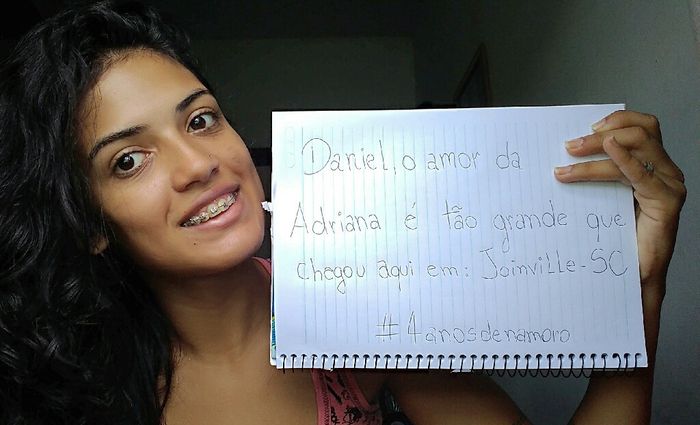 Daniel, o amor da
Adriana é tão grande que
chegou aqui em: Joinville-SC
#4anosdenamoro